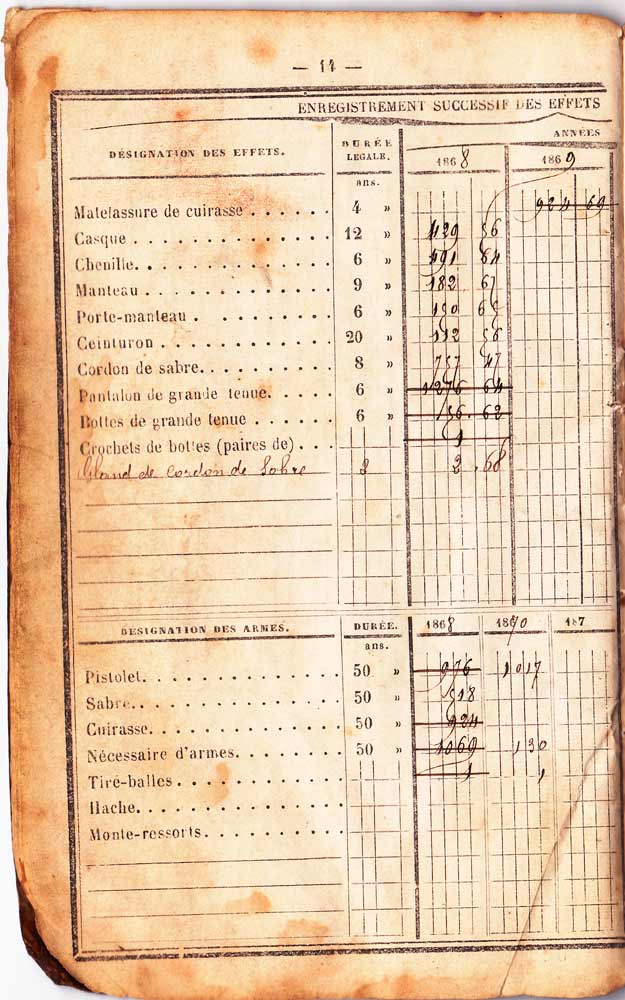 — 14 —
ENREGISTREMENT SUCCESSIF DES EFFETS
DÉSIGNATION DES EFFETS. DURÉE LEGALE. ANNÉES
1868 1869
ans.
Matelassure de cuirasse 4 » 924 69
Casque 12 » 429 56
Chenille 6 » 491 64
Manteau 9 » 182 67
Porte-manteau 6 » 190
Ceinturon 20 » 112 56
Cordon de sabre 8 » 757 47
Pantalon de grande tenue 6 » 1276 64
Bottes de grande tenue 6 » 156 62
Crochets de bottes (paires de) 1
Gland de cordon de Sabre 2 2 68
DESIGNATION DES ARMES. DURÉE. 1868 1870 187
ans.
Pistolet 50 » 976 1017
Sabre 50 » 518
Cuirasse 50 » 924
Nécessaire d'armes 50 » 1069 130
Tire-balles 1 1
Hache
Monte-ressorts